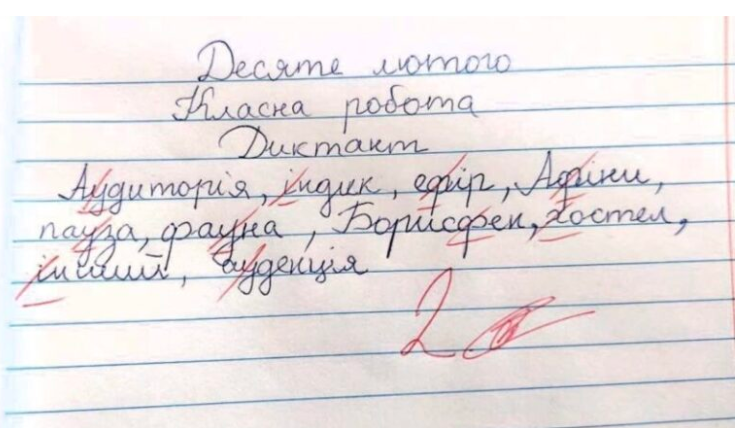 Десяте лютого
Класна робота
Диктант
Аудиторія, індик, ефір, Афіни,
пауза, фауна, Борисфен, хостел,
інший, ауденція
2